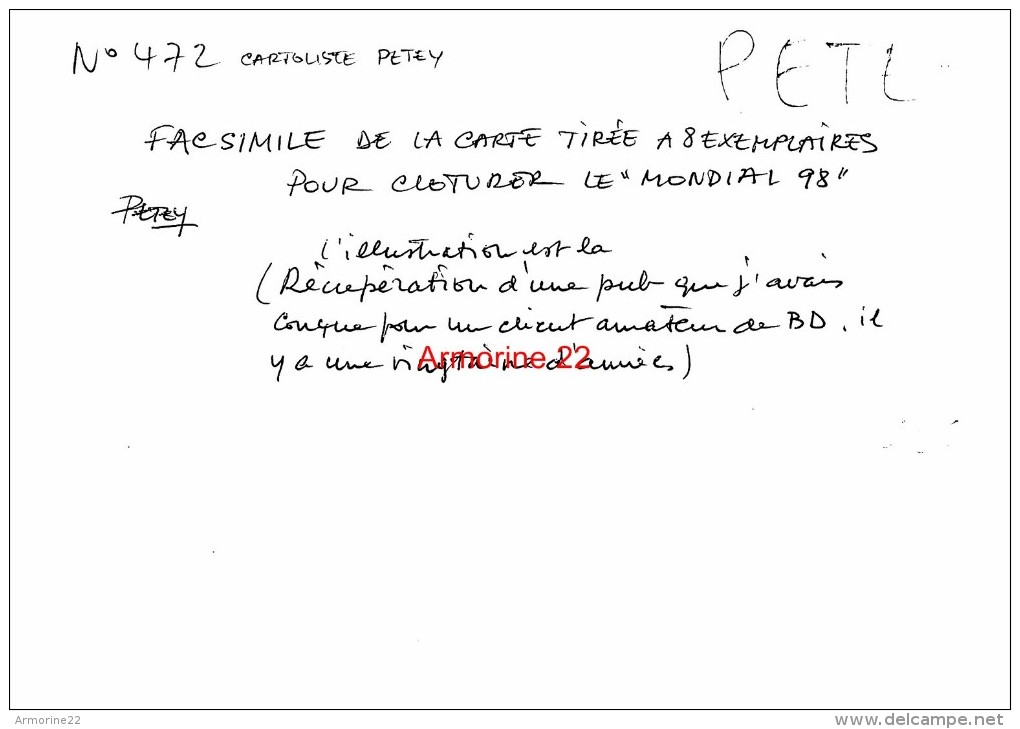 N° 472 CARTOLISTE PETEY
PETE
FACSIMILE DE LA CARTE TIRÉE A 8 EXEMPLAIRES
POUR CLOTURER LE "MONDIAL 98"
PETEY
l'illustration est la
(Récupération d'une pub que j'avais
conçue pour un client amateur de BD, il
y a une vingtaine d'années)
Armorine 22
Armorine22
www.delcampe.net